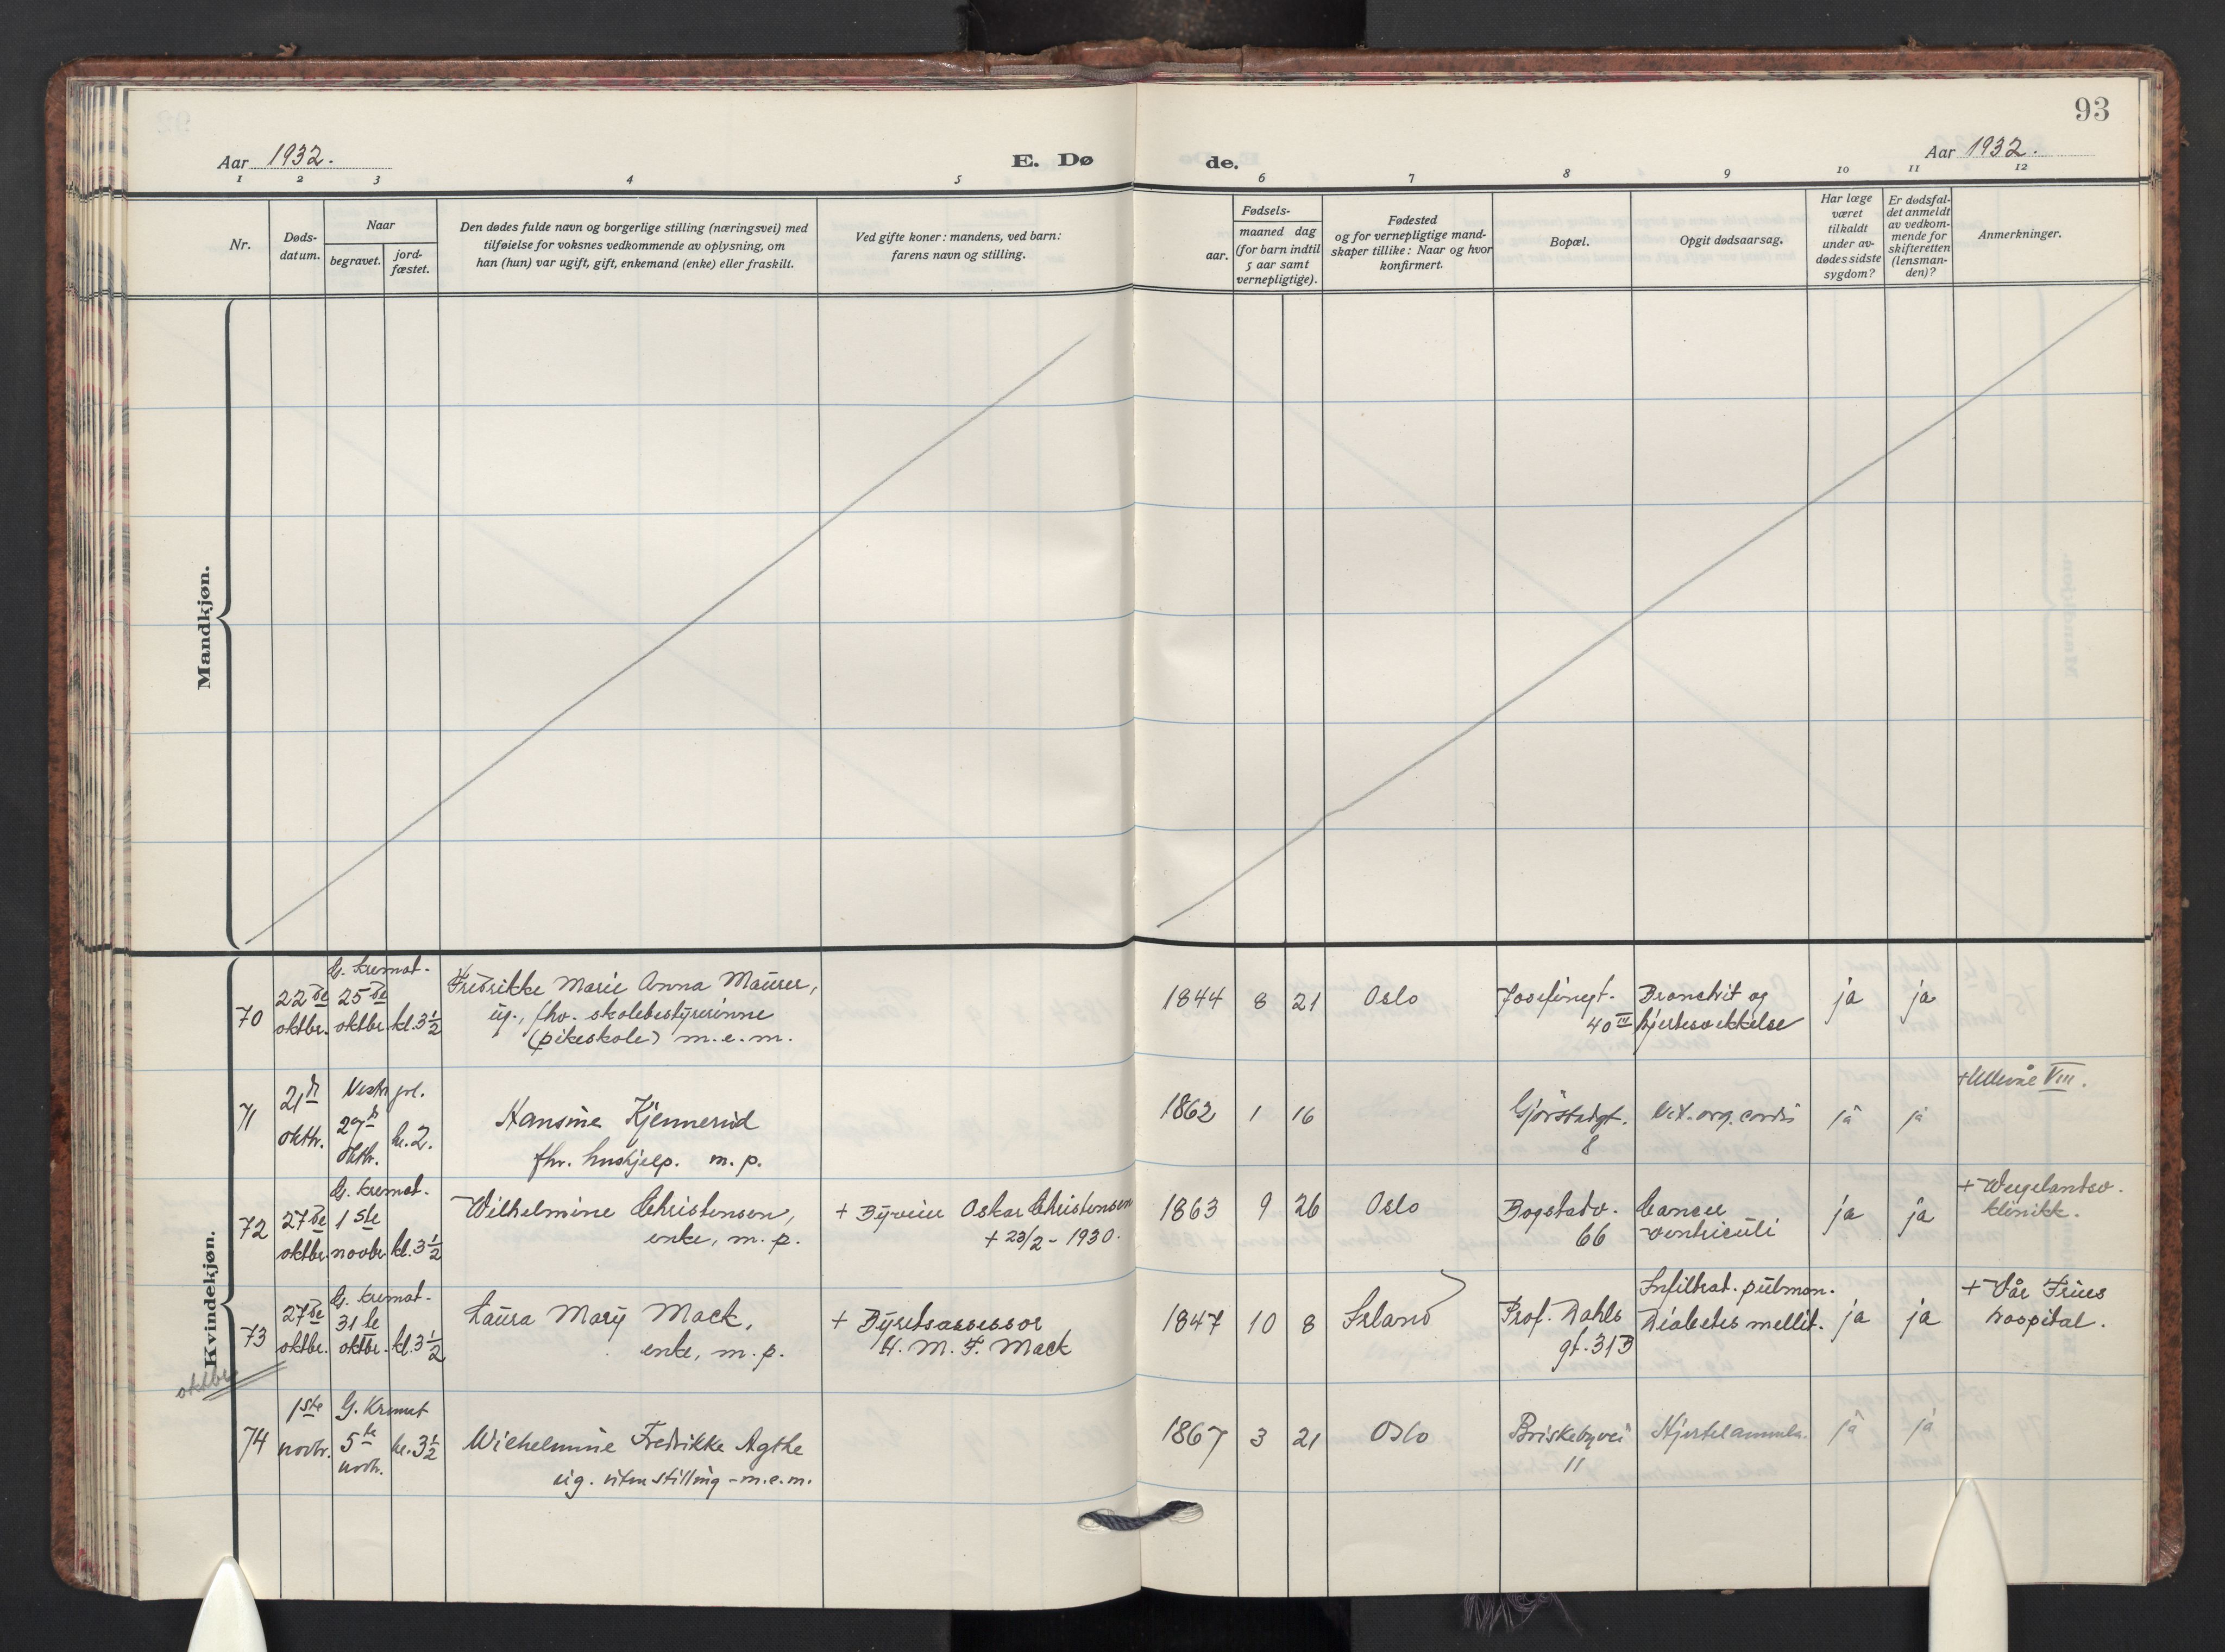 93
Aar 1932.
E. Dø
de.
Aar 1932.
1 2 3 4 5 6 7 8 9 10 11 12
Nr.
Døds-
datum.
Naar
begravet.
jord-
fæstet.
Den dødes fulde navn og borgerlige stilling (næringsvei) med
tilføielse for voksnes vedkommende av oplysning, om
han (hun) var ugift, gift, enkemand (enke) eller fraskilt.
Ved gifte koner: mandens, ved barn:
farens navn og stilling.
Fødsels-
aar.
maaned dag
(for barn indtil
5 aar samt
vernepligtige).
Fødested
og for vernepligtige mand-
skaper tillike: Naar og hvor
konfirmert.
Bopæl.
Opgit dødsaarsag.
Har læge
været
tilkaldt
under av-
dødes sidste
sygdom?
Er dødsfal-
det anmeldt
av vedkom-
mende for
skifteretten
(lensman-
den)?
Anmerkninger.
Mandkjøn.
Kvindekjøn.
70
22de
oktbr.
G. kremat.
25de
oktbr.
kl. 3½
Fredrikke Marie Anna Maurer,
ug., fhv. skolebestyrerinne
(pikeskole) m.e.m.
1844 8 21 Oslo
Josefinegt.
40 III
Bronchit og
hjertesvekkelse
ja ja
71
21
oktbr.
Vestr. grl.
29
Oktbr.
kl. 2.
Hansine Kjennerud
fhv. hushjelp. m.p.
1862 1 16
8
Vit. org. cordis
ja ja
+ Ullevål VIII.
72
27de
oktbr.
G. kremat.
1ste
novbr.
kl. 3½
Wilhelmine Christensen,
enke, m.p.
+ Byveier Oskar Christensen
+ 23/2 - 1930.
1863 9 26 Oslo
Bogstadv.
66
Cancer
ventriculi
ja ja
+ Wergelandsv.
klinikk.
73
27de
oktbr.
G. kremat.
31te
oktbr.
kl. 3½
Laura Mary Mack,
enke, m.p.
+ Byretsassessor
H. M. F. Mack
1847 10 8 Irland
Prof. Dahls
gt. 31B
Infiltrat. pulmon.
Diabetes mellit.
ja ja
+ Vår Frues
hospital.
oktbr.
74
1ste
novbr.
G. Kremat
5te
novbr.
kl. 3½
Wilhelmine Fredrikke Agthe
ug. uten stilling - m.e.m.
1867 3 21 Oslo
Briskebyvei
11
Hjertelammelse.
ja ja